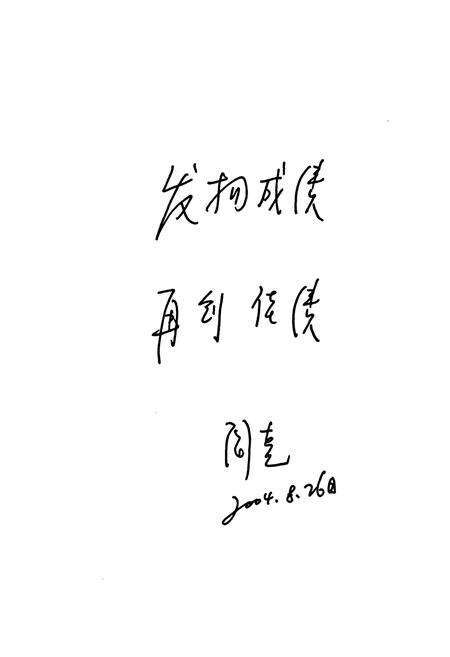 发扬成绩
再创佳绩
阎克
2004.8.26日